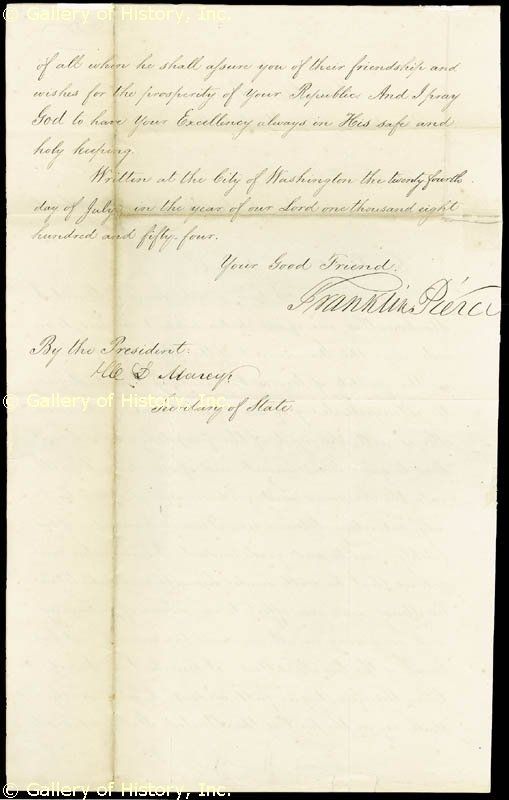 © Gallery of History, Inc.
of all when he shall assure you of their friendship and
wishes for the prosperity of Your Republic. And I pray
God to have Your Excellency always in His safe and
holy keeping.
Written at the City of Washington the twenty fourth
day of July, in the year of our Lord one thousand eight
hundred and fifty-four.
Your Good Friend.
Franklin Pierce
By the President:
W L Marcy,
Secretary of State.
© Gallery of History, Inc.
© Gallery of History, Inc.